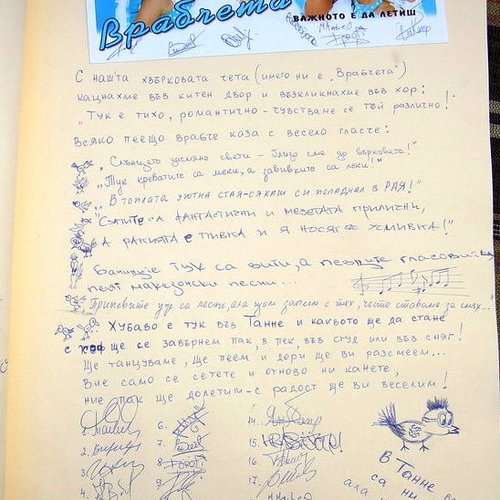 Врабчета
ВАЖНОТО Е ДА ЛЕТИШ
С нашта хвърковата чета (името ни е „Врабчета")
кацнахме във китен двор и възкликнахме във хор:
„Тук е тихо, романтично - чувстваме се тъй различно!"
Всяко пеещо врабче каза с весело гласче:
„Слънцето засмяно свети - близо сме до върховете!"
„Тук креватите са меки, а завивките са леки!"
„В топлата уютна стая - сякаш си попаднал в РАЯ!"
„Супите са фантастични и мезетата прилични,
а ракията е пивка и я носят с усмивка!"
тук са вити, а певците гласовити
пеят македонски песни...
Припевите уж са лесни, ала щом запеем с тях, често ставаме за смях...
Хубаво е тук във Танне и каквото ще да стане
с кеф ще се завърнем пак, в пек, във студ или във сняг!
Ще танцуваме, ще пеем и дори ще ви разсмеем...
Вие само се сетете и отново ни канете,
ние пак ще долетим - с радост ще ви веселим!
1.
2.
3.
4.
6.
7.
8.
9.
14.
15.
16.
17.
В Танне
са ни
ала